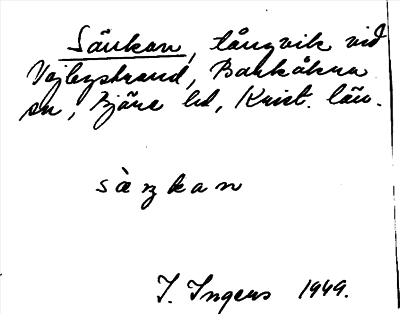 Sänkan, långvik vid
Vejbystrand, Barkåkra
sn, Bjäre hd, Krist. län.
sàŋkan
I. Ingers 1949.